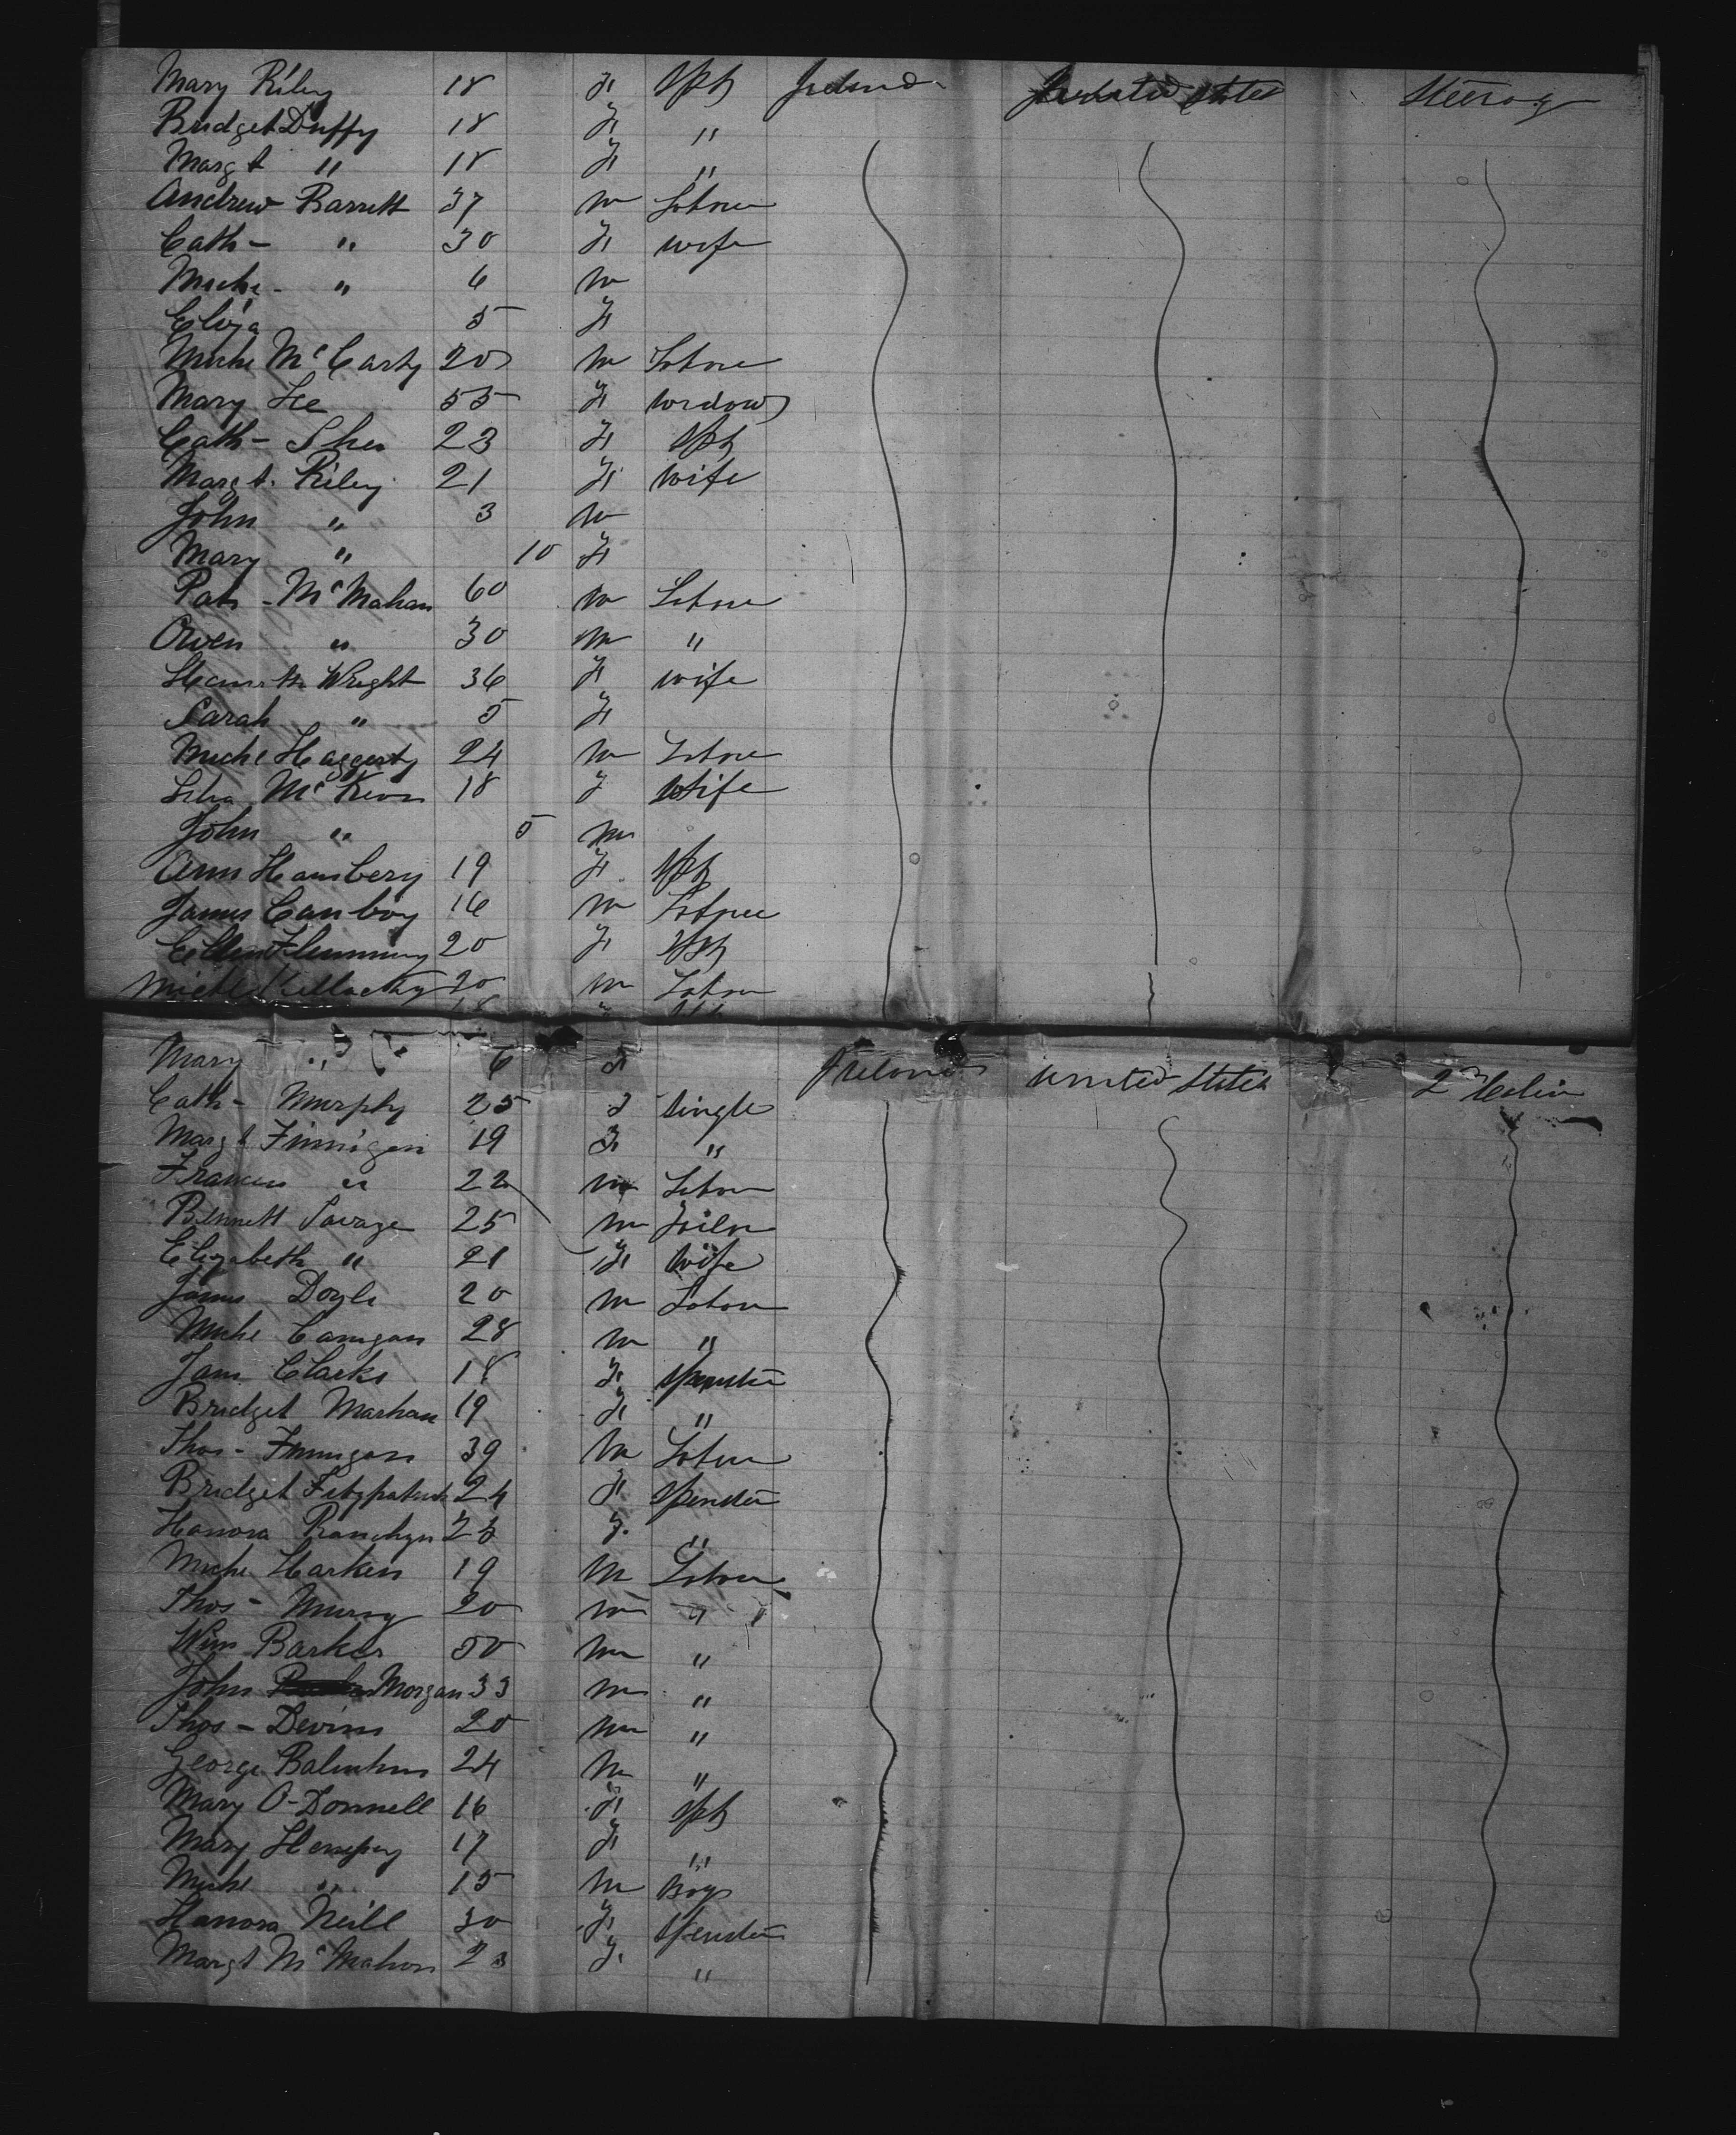 Mary Riley 18 F Sptr Ireland United States Steerage
Bridget Duffy 18 F "
Margt " 18 F "
Andrew Barrett 37 M Labour
Cath - " 30 F wife
Michl - " 6 M
Eliza 5 F
Michl McCarty 20 M Labour
Mary Lee 55 F widow
Cath - Shea 23 F Sptr
Margt. Riley 21 F wife
John " 3 M
Mary " 10 F
Patk - McMahan 60 M Labour
Owen " 30 M "
Wright 36 F wife
Sarah " 5 F
Michl Haggerty 24 M Labour
McKeon 18 F Wife
John " 5 M
Ann Hansbery 19 F Sptr
James Canboy 16 M Labour
Ellen Flemming 20 F Sptr
Michl Kellachy 20 M Labour
Mary " 6 F Ireland United States 2nd Cabin
Cath - Murphy 25 F Single
Margt Finnigan 19 F "
Francis " 22 M Labour
Bennett Savage 25 M Sailor
Elizabeth " 21 F Wife
James Doyle 20 M Labour
Michl Canigan 28 M "
Jane Clarke 18 F Spinster
Bridget Marhan 19 F "
Thos - Finnigan 39 M Labour
Bridget Fitzpatrick 24 F Spinster
Hanora 23 F. "
Michl Harkin 19 M Labour
Thos - Murray 20 M "
Wm Barker 50 M "
John Morgan 33 M "
Thos - Devins 20 M "
George 24 M "
Mary O-Donnell 16 F Sptr
Mary 17 F "
Michl " 15 M Boy
Hanora Neill 30 F Spinster
Margt McMahon 23 F. "